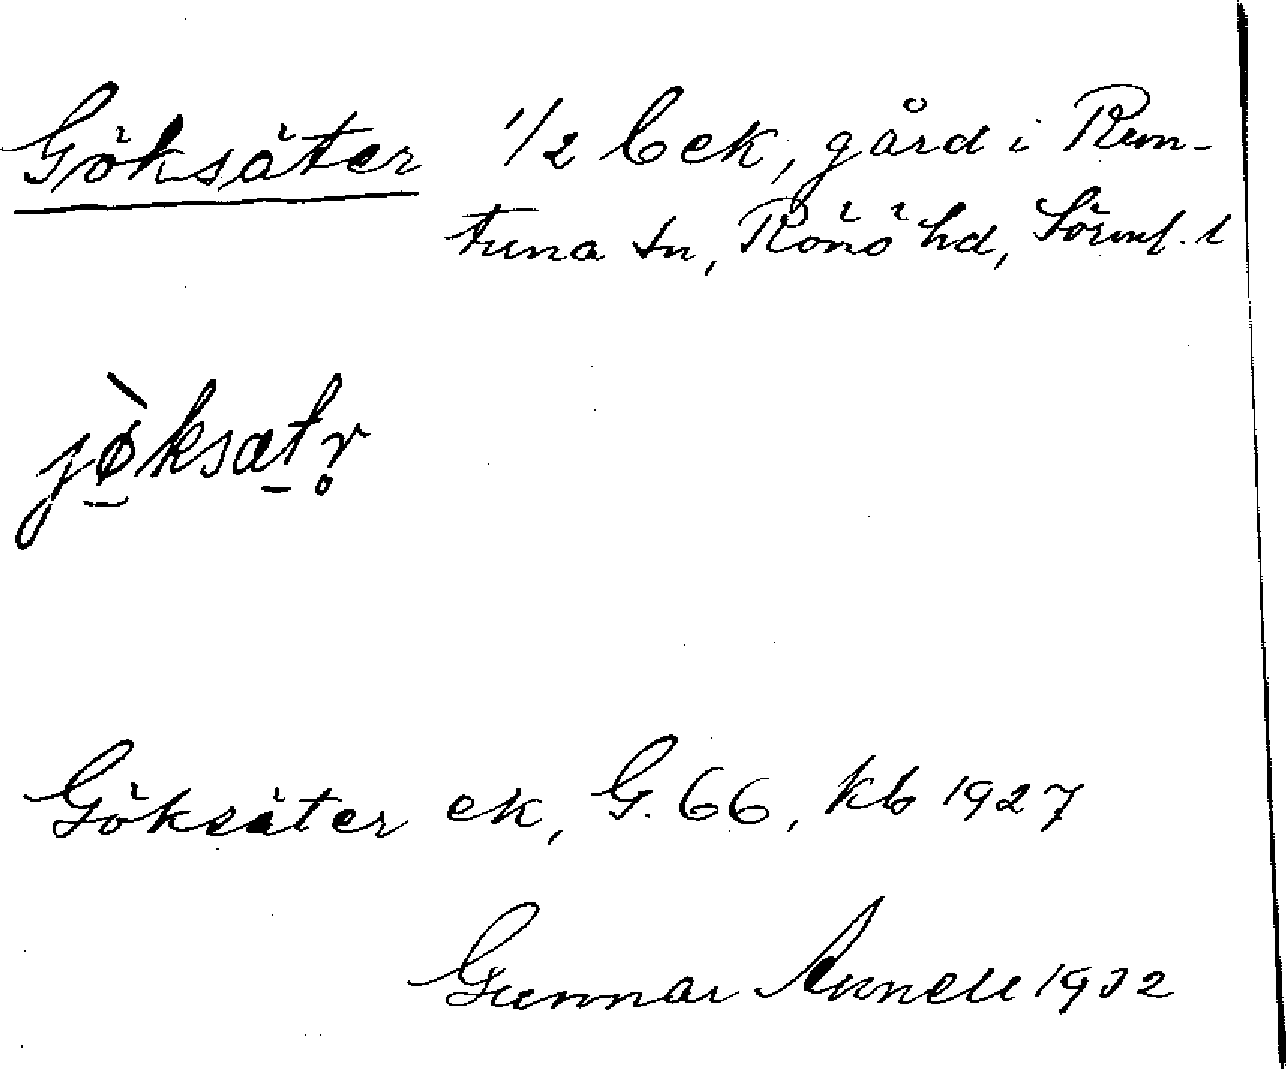 Göksäter 1/2 bek, gård i Run-
tuna sn, Rönö hd, Sörml. l
jö̀ksatr̥
Göksäter ek, G. 66, kb 1927
Gunnar Annell 1932